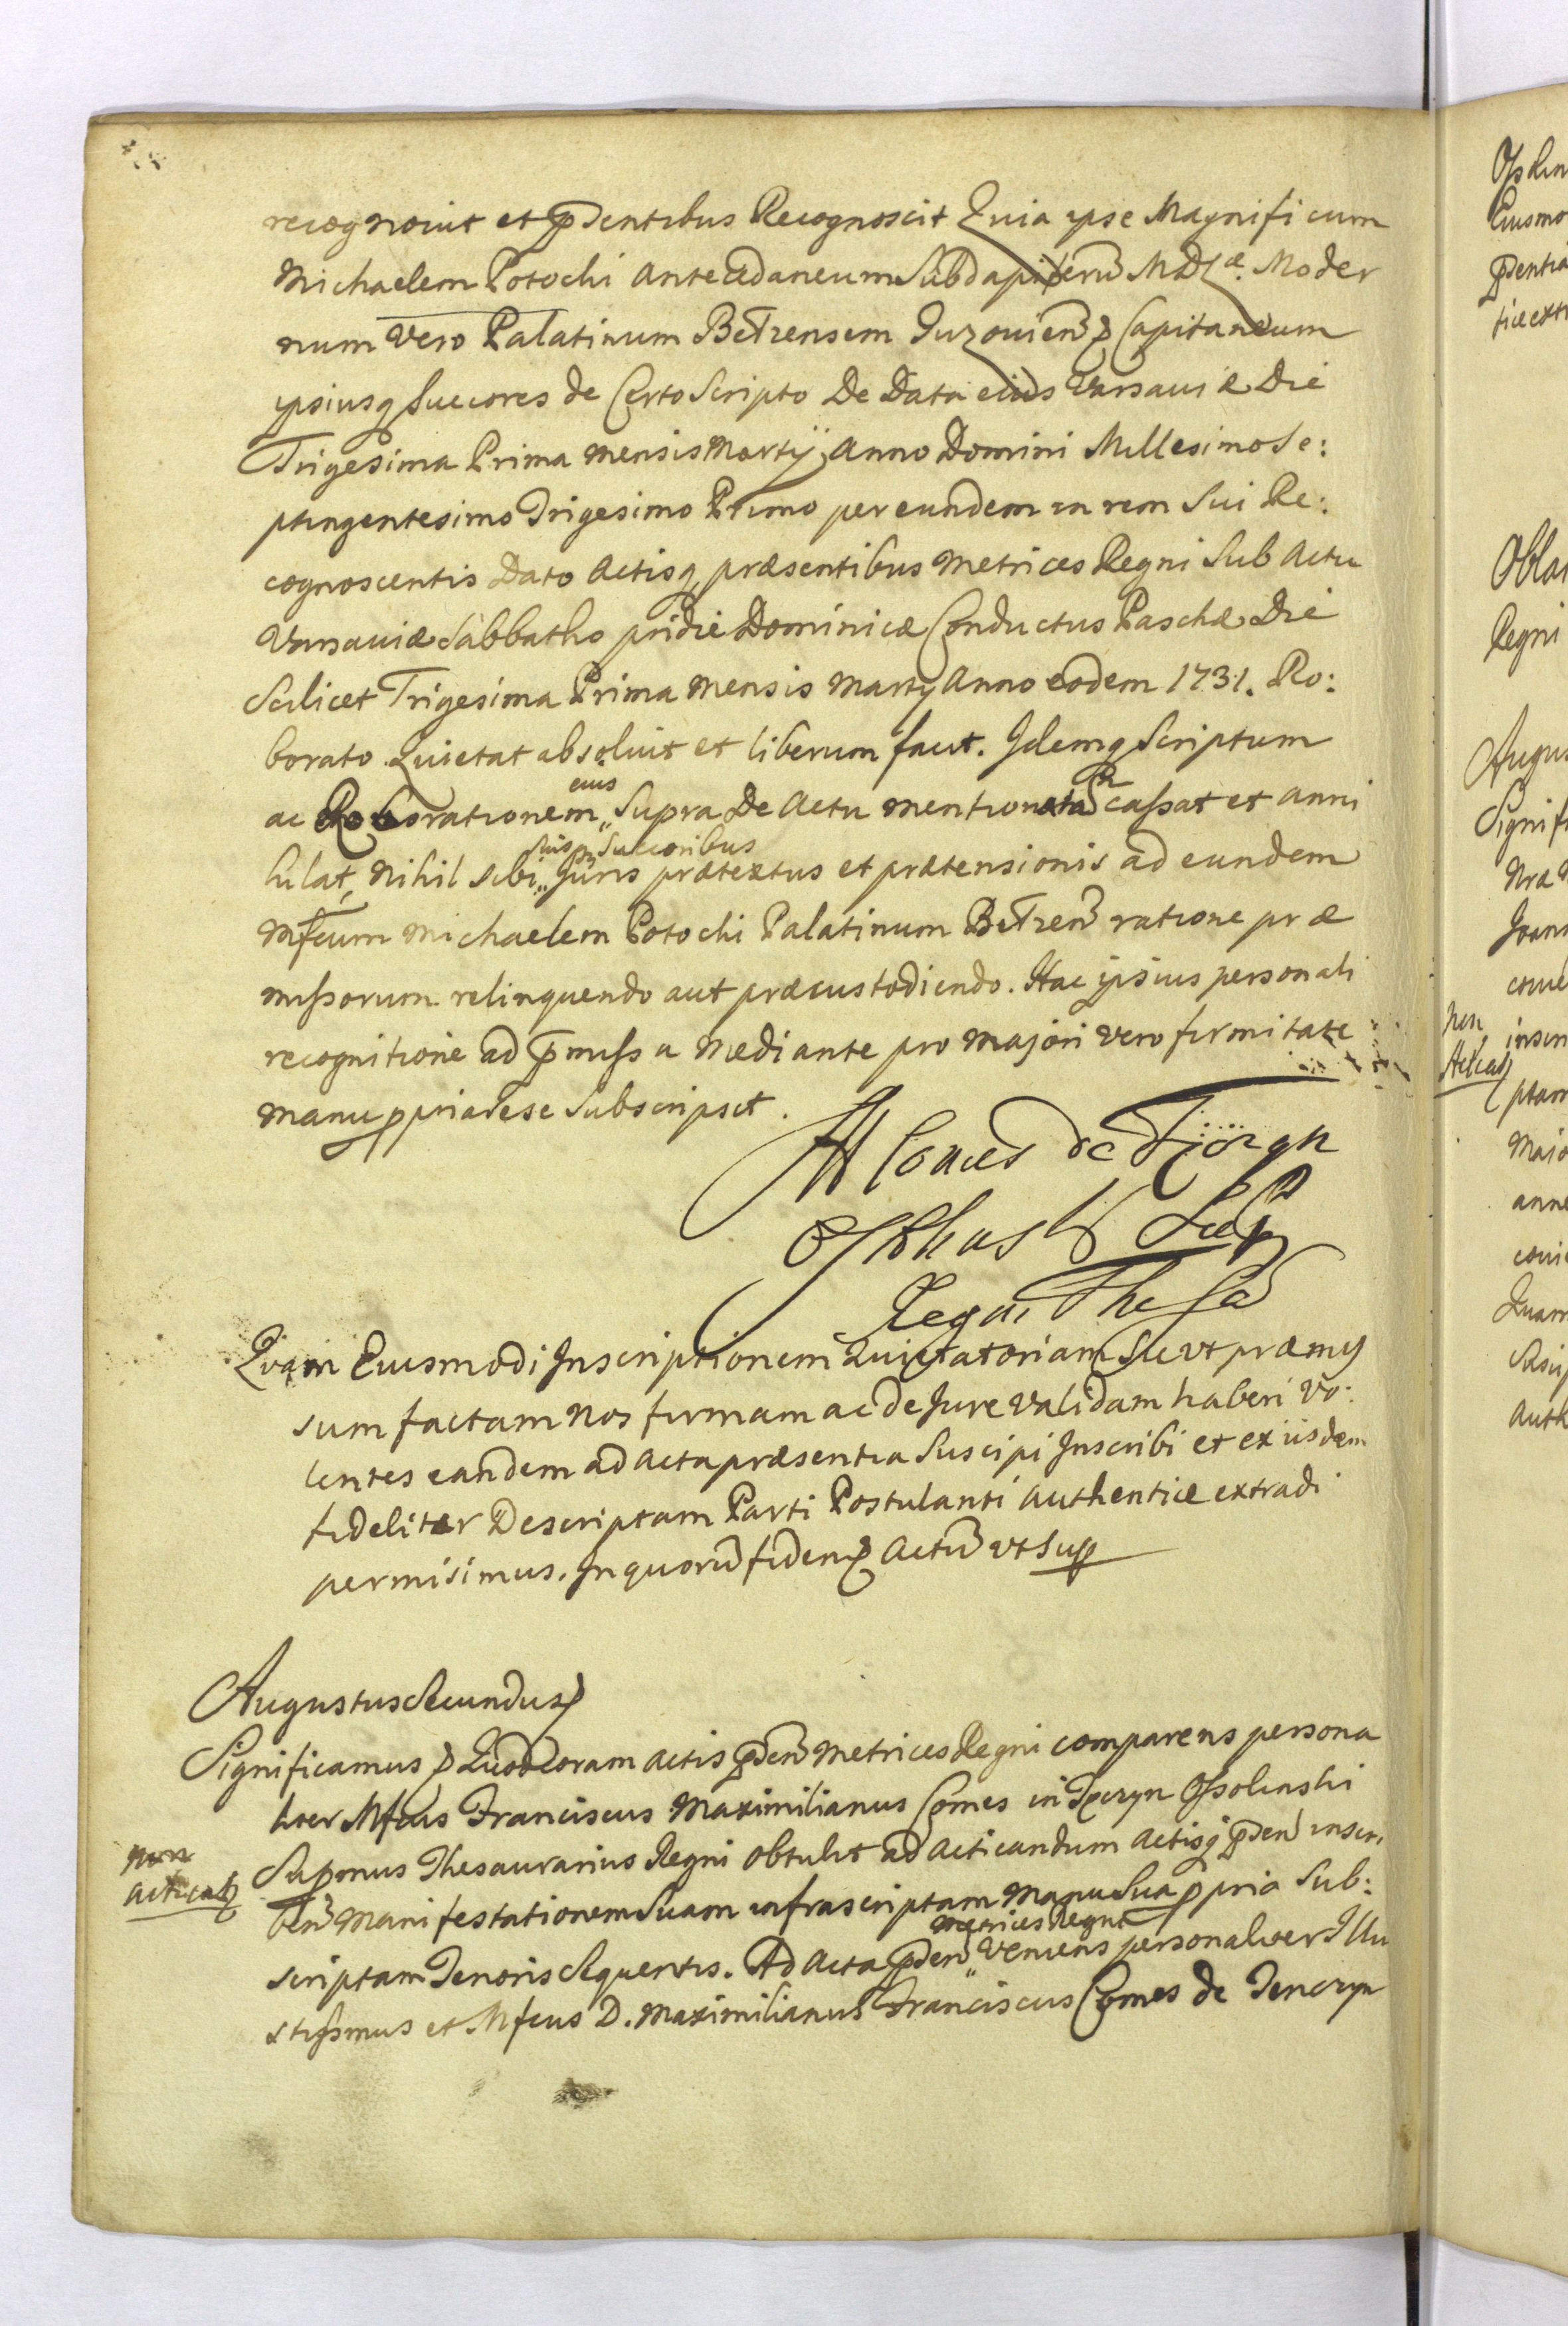 recognovit et pdentibus Recognoscit Quia ipse Magnificum
Michaelem Potocki Antecedaneum Subdapiferũ MDLæ. Moder
num vero Palatinum Betzensem Capitaneum
ipsiusq Succores de Certo Scripto De Data eius Varsaviæ Die
Trigesima Prima mensis Martÿ Anno Domini Millesimo Se:
ptingentesimo Trigesimo Primo per eundem in rem Sui Re:
cognoscentis Dato Actisq præsentibus Metrices Regni Sub Actu
Varsaviæ Sabbatho pridie Dominicæ Conductus Paschæ Die
Scilicet Trigesima Prima Mensis Martÿ Anno eodem 1731. Ro:
borato Quietat absolvit et liberum facit. Idemq Scriptum
eius
ac Roborationem „ Supra De Actu mentionata cassat et anni
suis Succoribus
hilat, Nihil sibi „ Juris prætextus et prætensionis ad eundem
Mfcum Michaelem Potocki Palatinum Betzen ratione præ
missorum relinquendo aut præcustodiendo. Hac ipsius personali
recognitione ad pmissa mediante pro majori vero firmitate
manu ppria sese Subscripsit.
Comes de
Regni The
Quam Eiusmodi Inscriptionem Quietatoriam Sic ut præmis
sum factam Nos firmam ac de Jure validam haberi vo:
lentes eandem ad Acta præsentia Suscipi Inscribi et ex iisdem
fideliter Descriptam Parti Postulanti Authentice extradi
permisimus. In quorũ fidem Actũ ut Sup
Augustus Secundus
Significamus Quod coram Actis pden Metrices Regni comparens persona
liter Mfcus Franciscus Maximilianus Comes in Tęczyn Ossolinski
Non
Supmus Thesaurarius Regni obtulit ad acticandum Actisq pden inscri
acticat
ben Manifestationem Suam infrascriptam Manu Sua ppria Sub:
Metrices Regni
scriptam Tenoris Sequentis. Ad Acta pden „ Veniens personaliter Illu
strissmus et Mfcus D. Maximilianus Franciscus Comes de Tenczyn
Regni